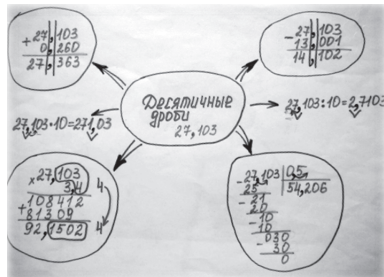 + 27,103
0,260
27,363
- 27,103
13,001
14,102
Десятичные
дроби
27,103
27,103·10=271,03
27,103:10=2,7103
× 27,103
3,4 4
108412
+ 81309
92,1502 4
- 27,103 | 0,5
25 54,206
- 21
20
- 10
10
- 030
30
0